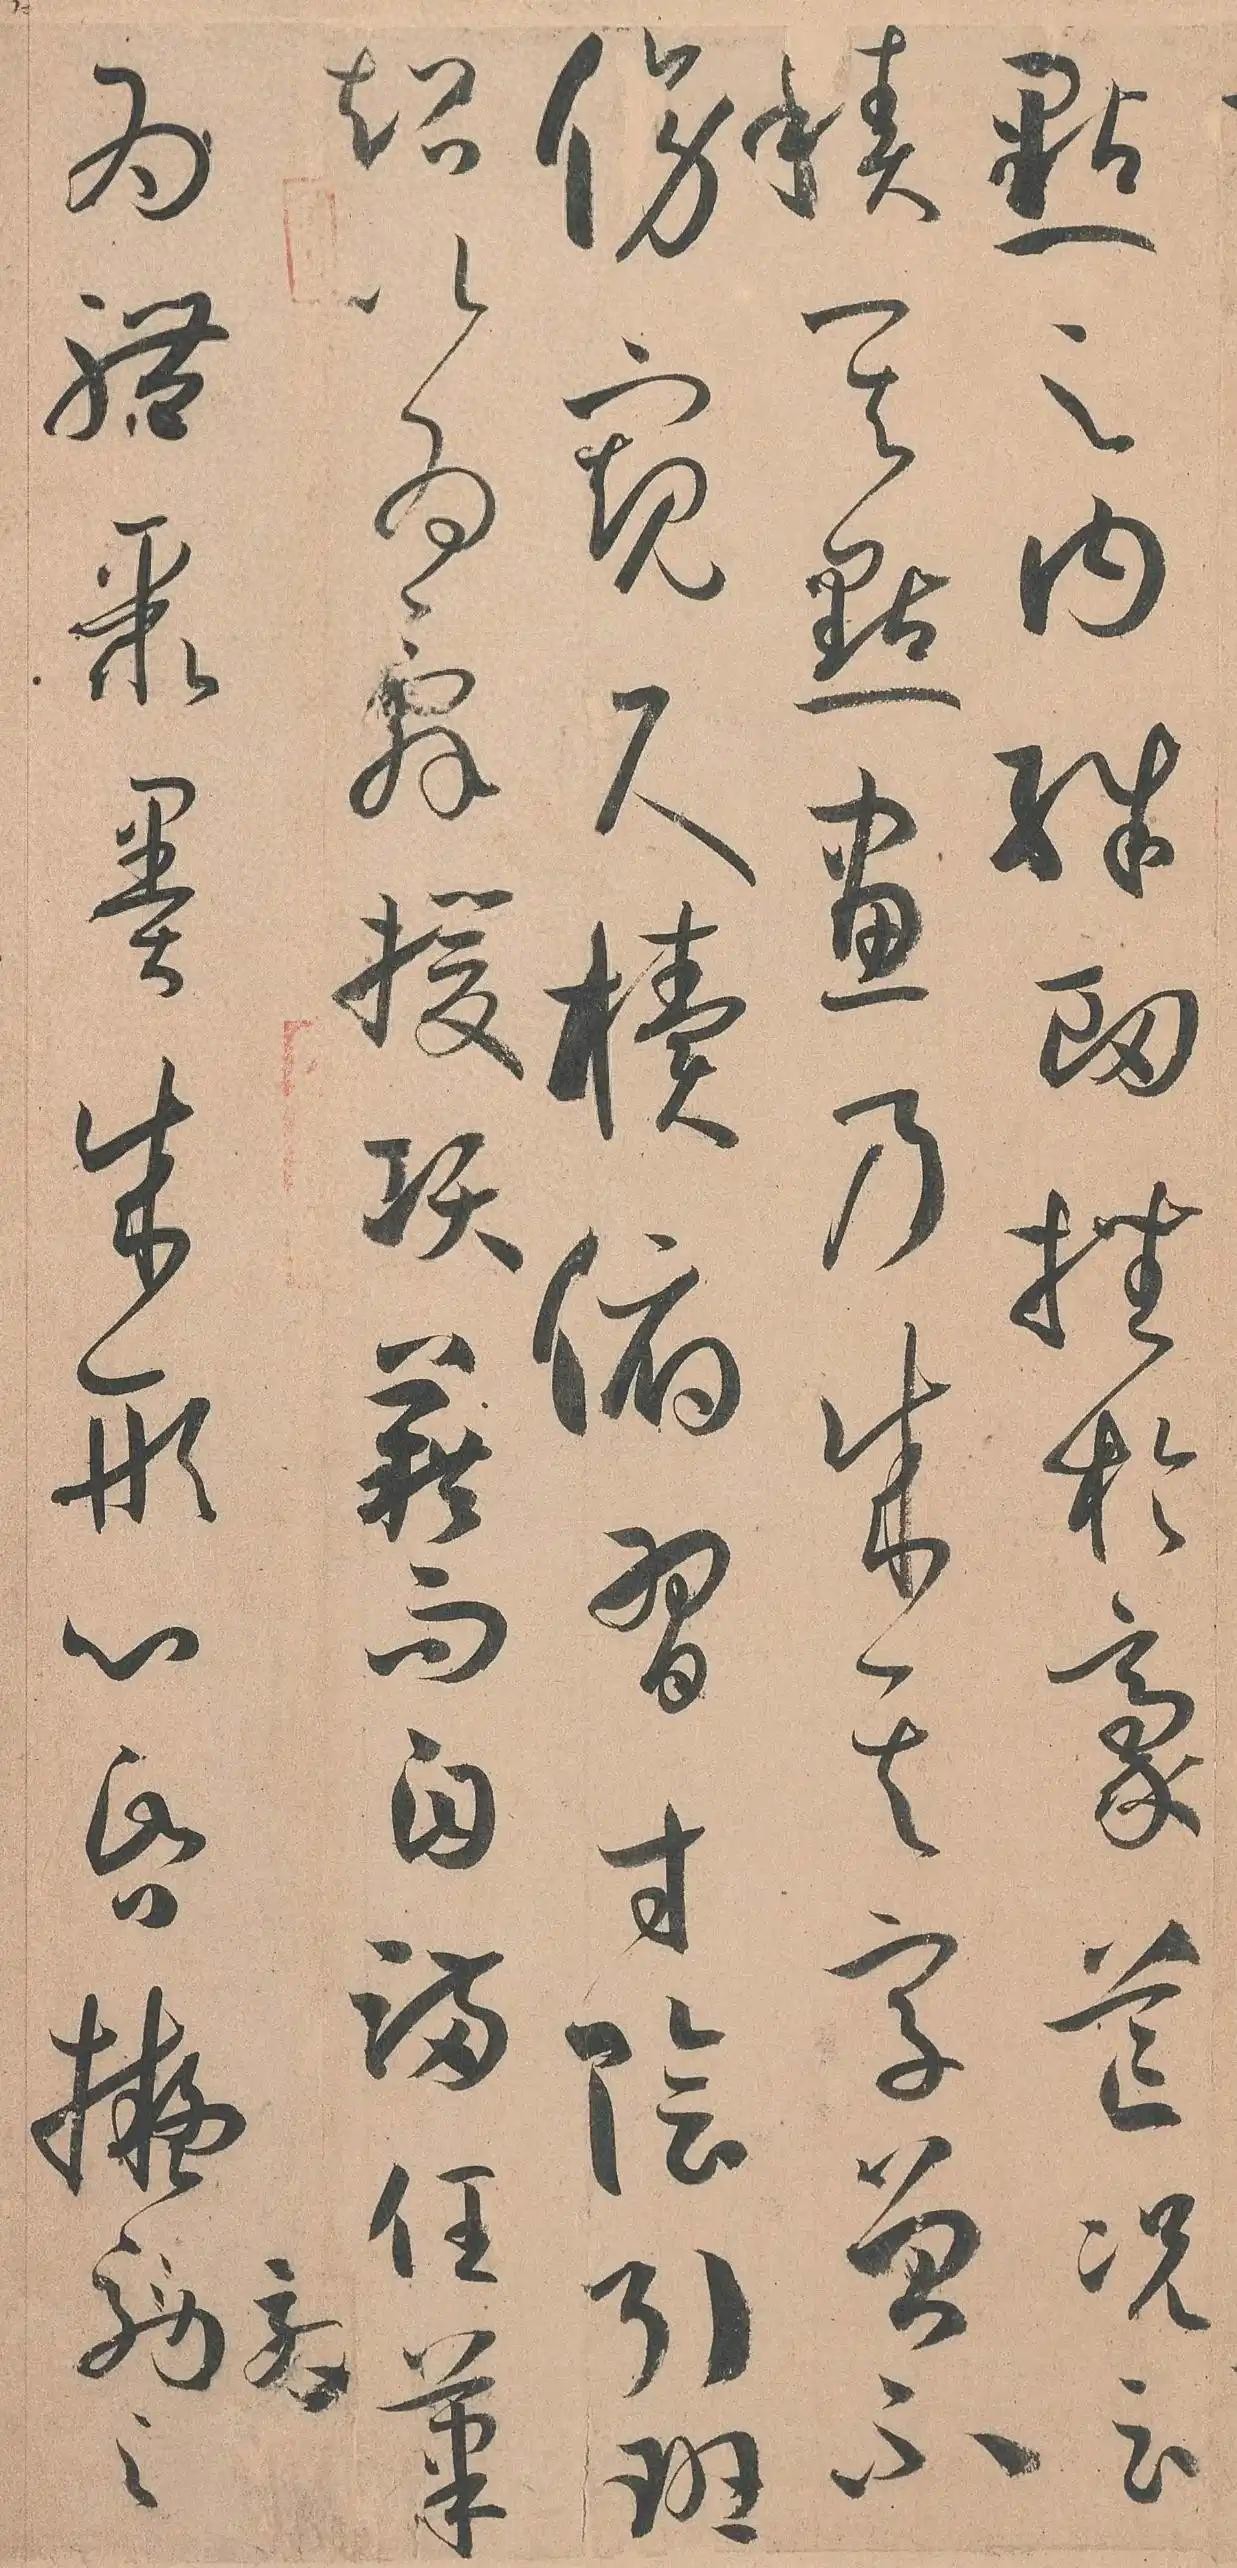 點之內殊衄挫於豪芒況云
積其點畫乃成其字曾不
傍窺尺櫝俯習寸陰引班
超以為辭援項籍而自滿任筆
為體聚墨成形心昏擬効之